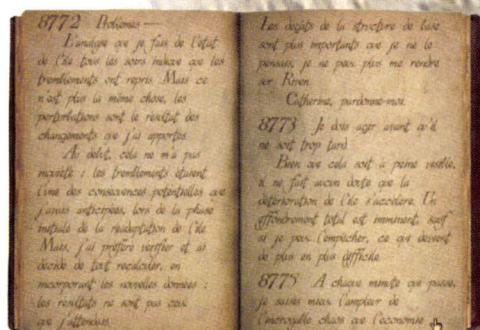 8772 Problèmes —
L'analyse que je fais de l'état
de l'île tous les soirs indique que les
tremblements ont repris. Mais ce
n'est plus la même chose, les
perturbations sont le résultat des
changements que j'ai apportés.
Au début, cela ne m'a pas
inquiété : les tremblements étaient
l'une des conséquences potentielles que
j'avais anticipées, lors de la phase
initiale de la réadaptation de l'île.
Mais, j'ai préféré vérifier et ai
décidé de tout recalculer, en
incorporant les nouvelles données :
les résultats ne sont pas ceux
que j'attendais.
Les dégâts de la structure de base
sont plus importants que je ne le
pensais, je ne peux plus me rendre
sur Riven.
Catherine, pardonne-moi.
8773 Je dois agir avant qu'il
ne soit trop tard.
Bien que cela soit à peine visible,
il ne fait aucun doute que la
détérioration de l'île s'accélère. Un
effondrement total est imminent, sauf
si je peux l'empêcher, ce qui devient
de plus en plus difficile.
8775 A chaque minute que passe,
je saisis mieux l'ampleur de
l'incroyable chaos que l'économie